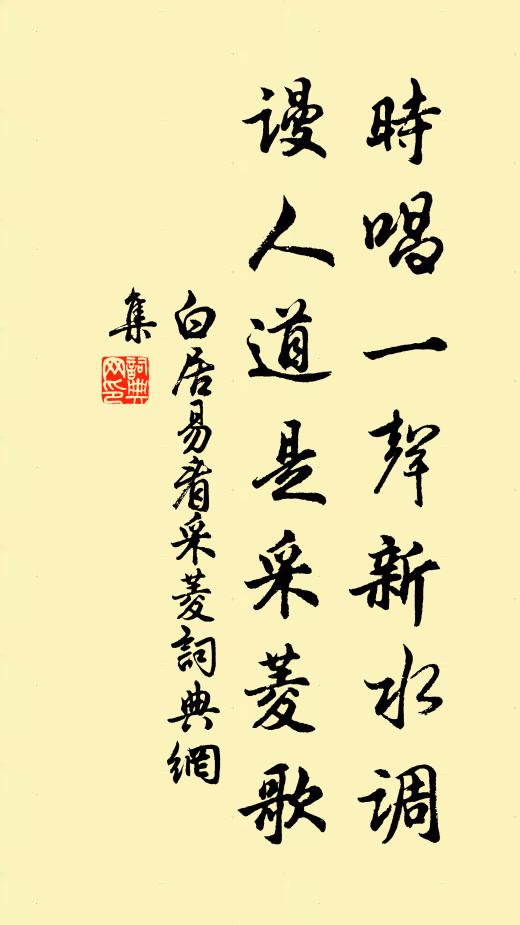 時唱一聲新水调
謾人道是采菱歌
白居易看采菱詞典網
集
詞典
网印